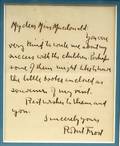 My dear Miss Macdonald:
You are
very kind to write me about my
success with the children. Perhaps
some of them might like to have
the little books enclosed as
souvenirs of my visit.
Best wishes to them and
you.
Sincerely yours
Robert Frost